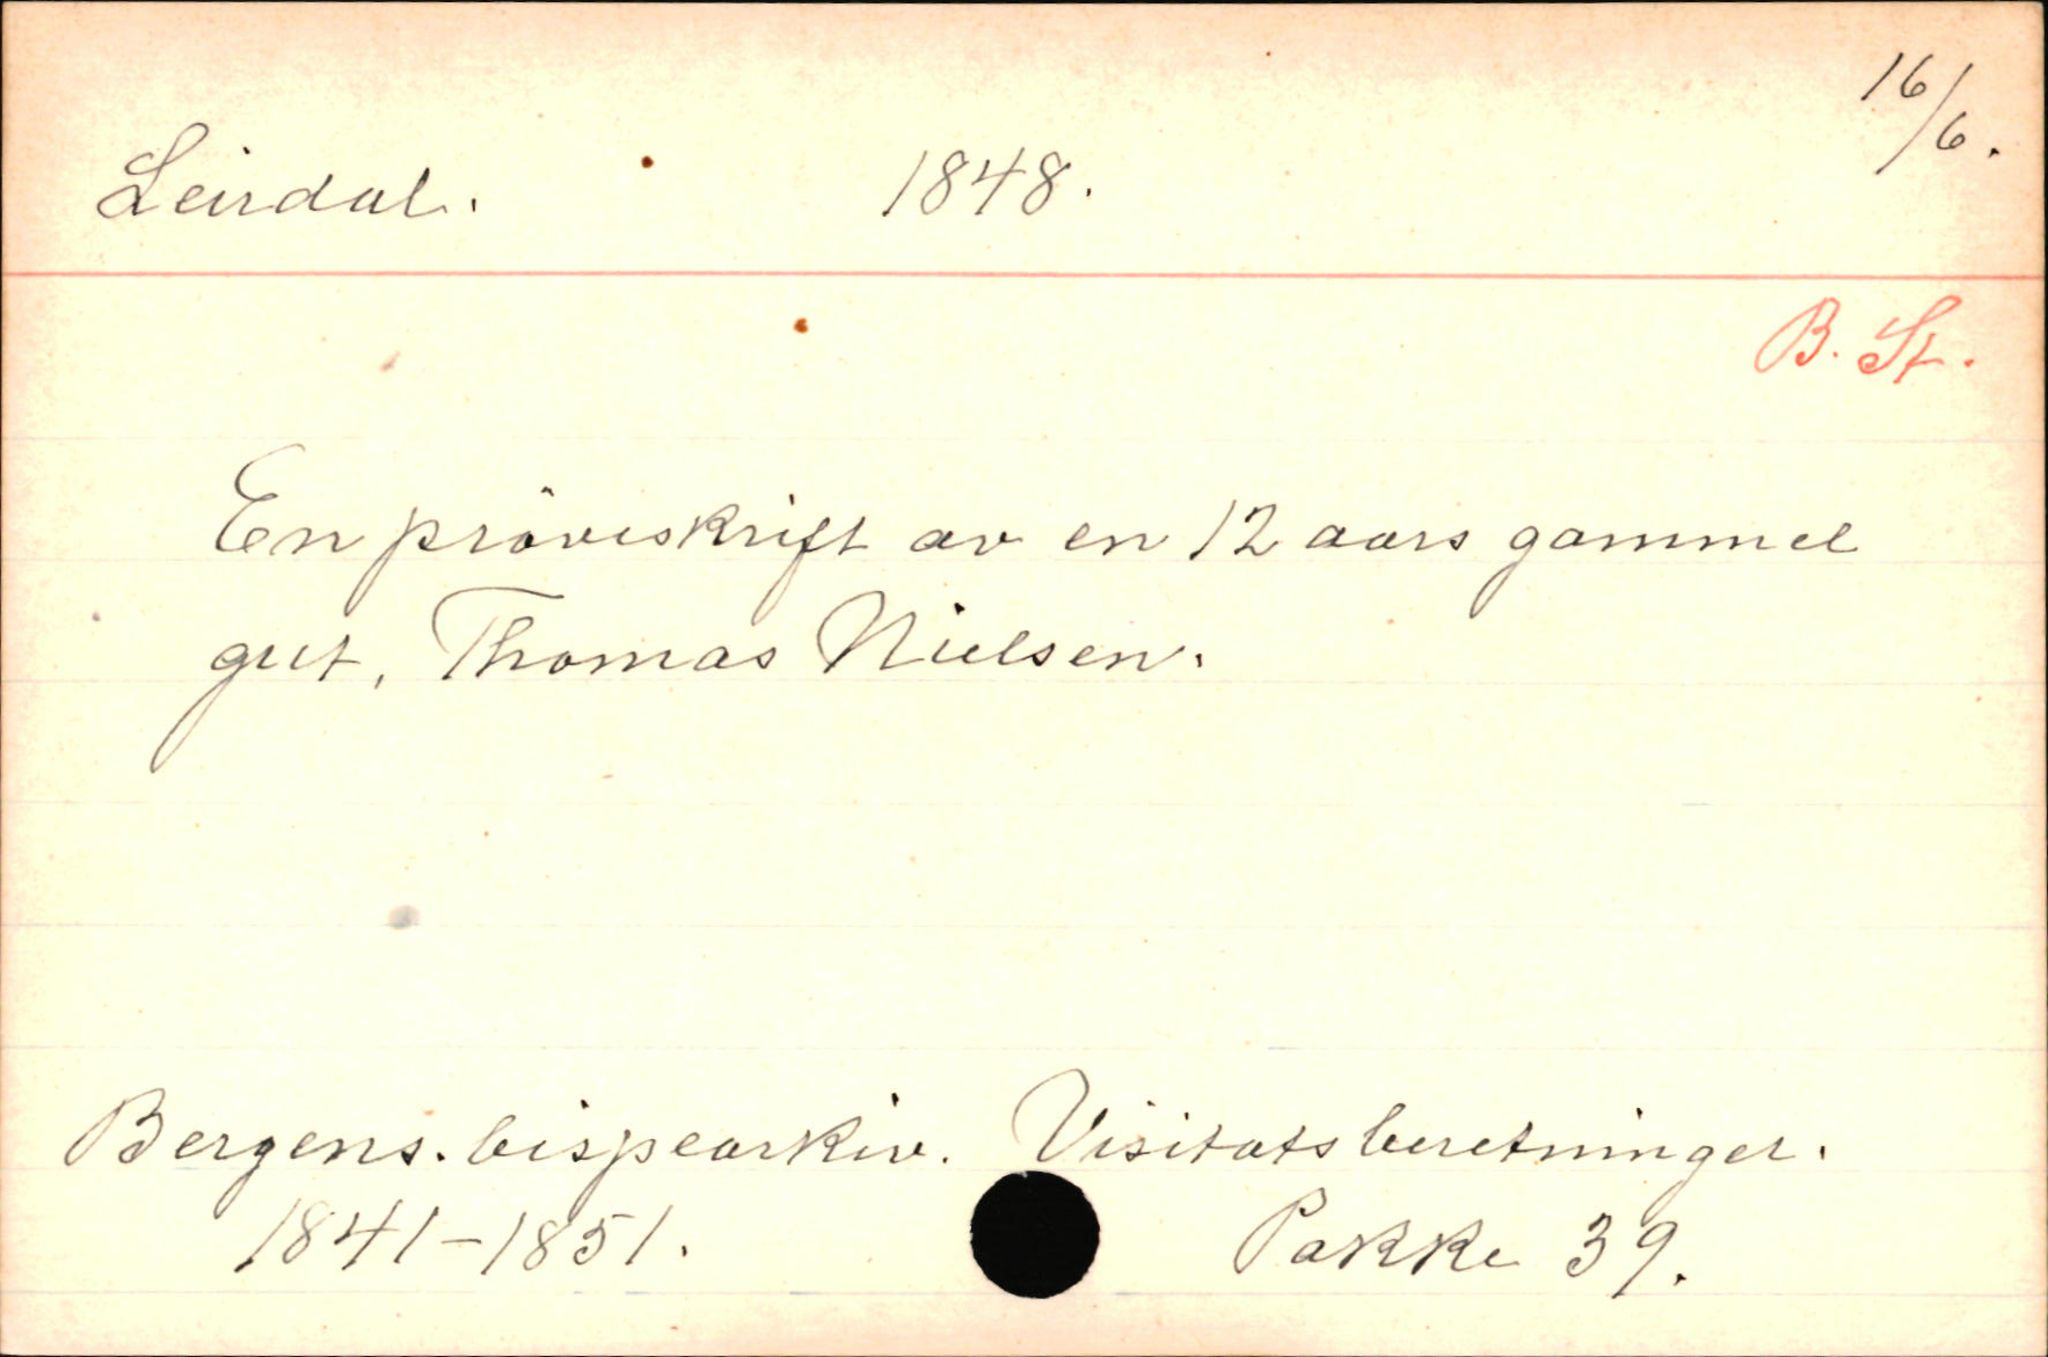 Leirdal. 1848. 16/6.
B. St.
En pröveskrift av en 12 aars gammel
gut, Thomas Nielsen.
Bergens. bispearkiv. Visitatsberetninger.
1841-1851. Pakke 39.